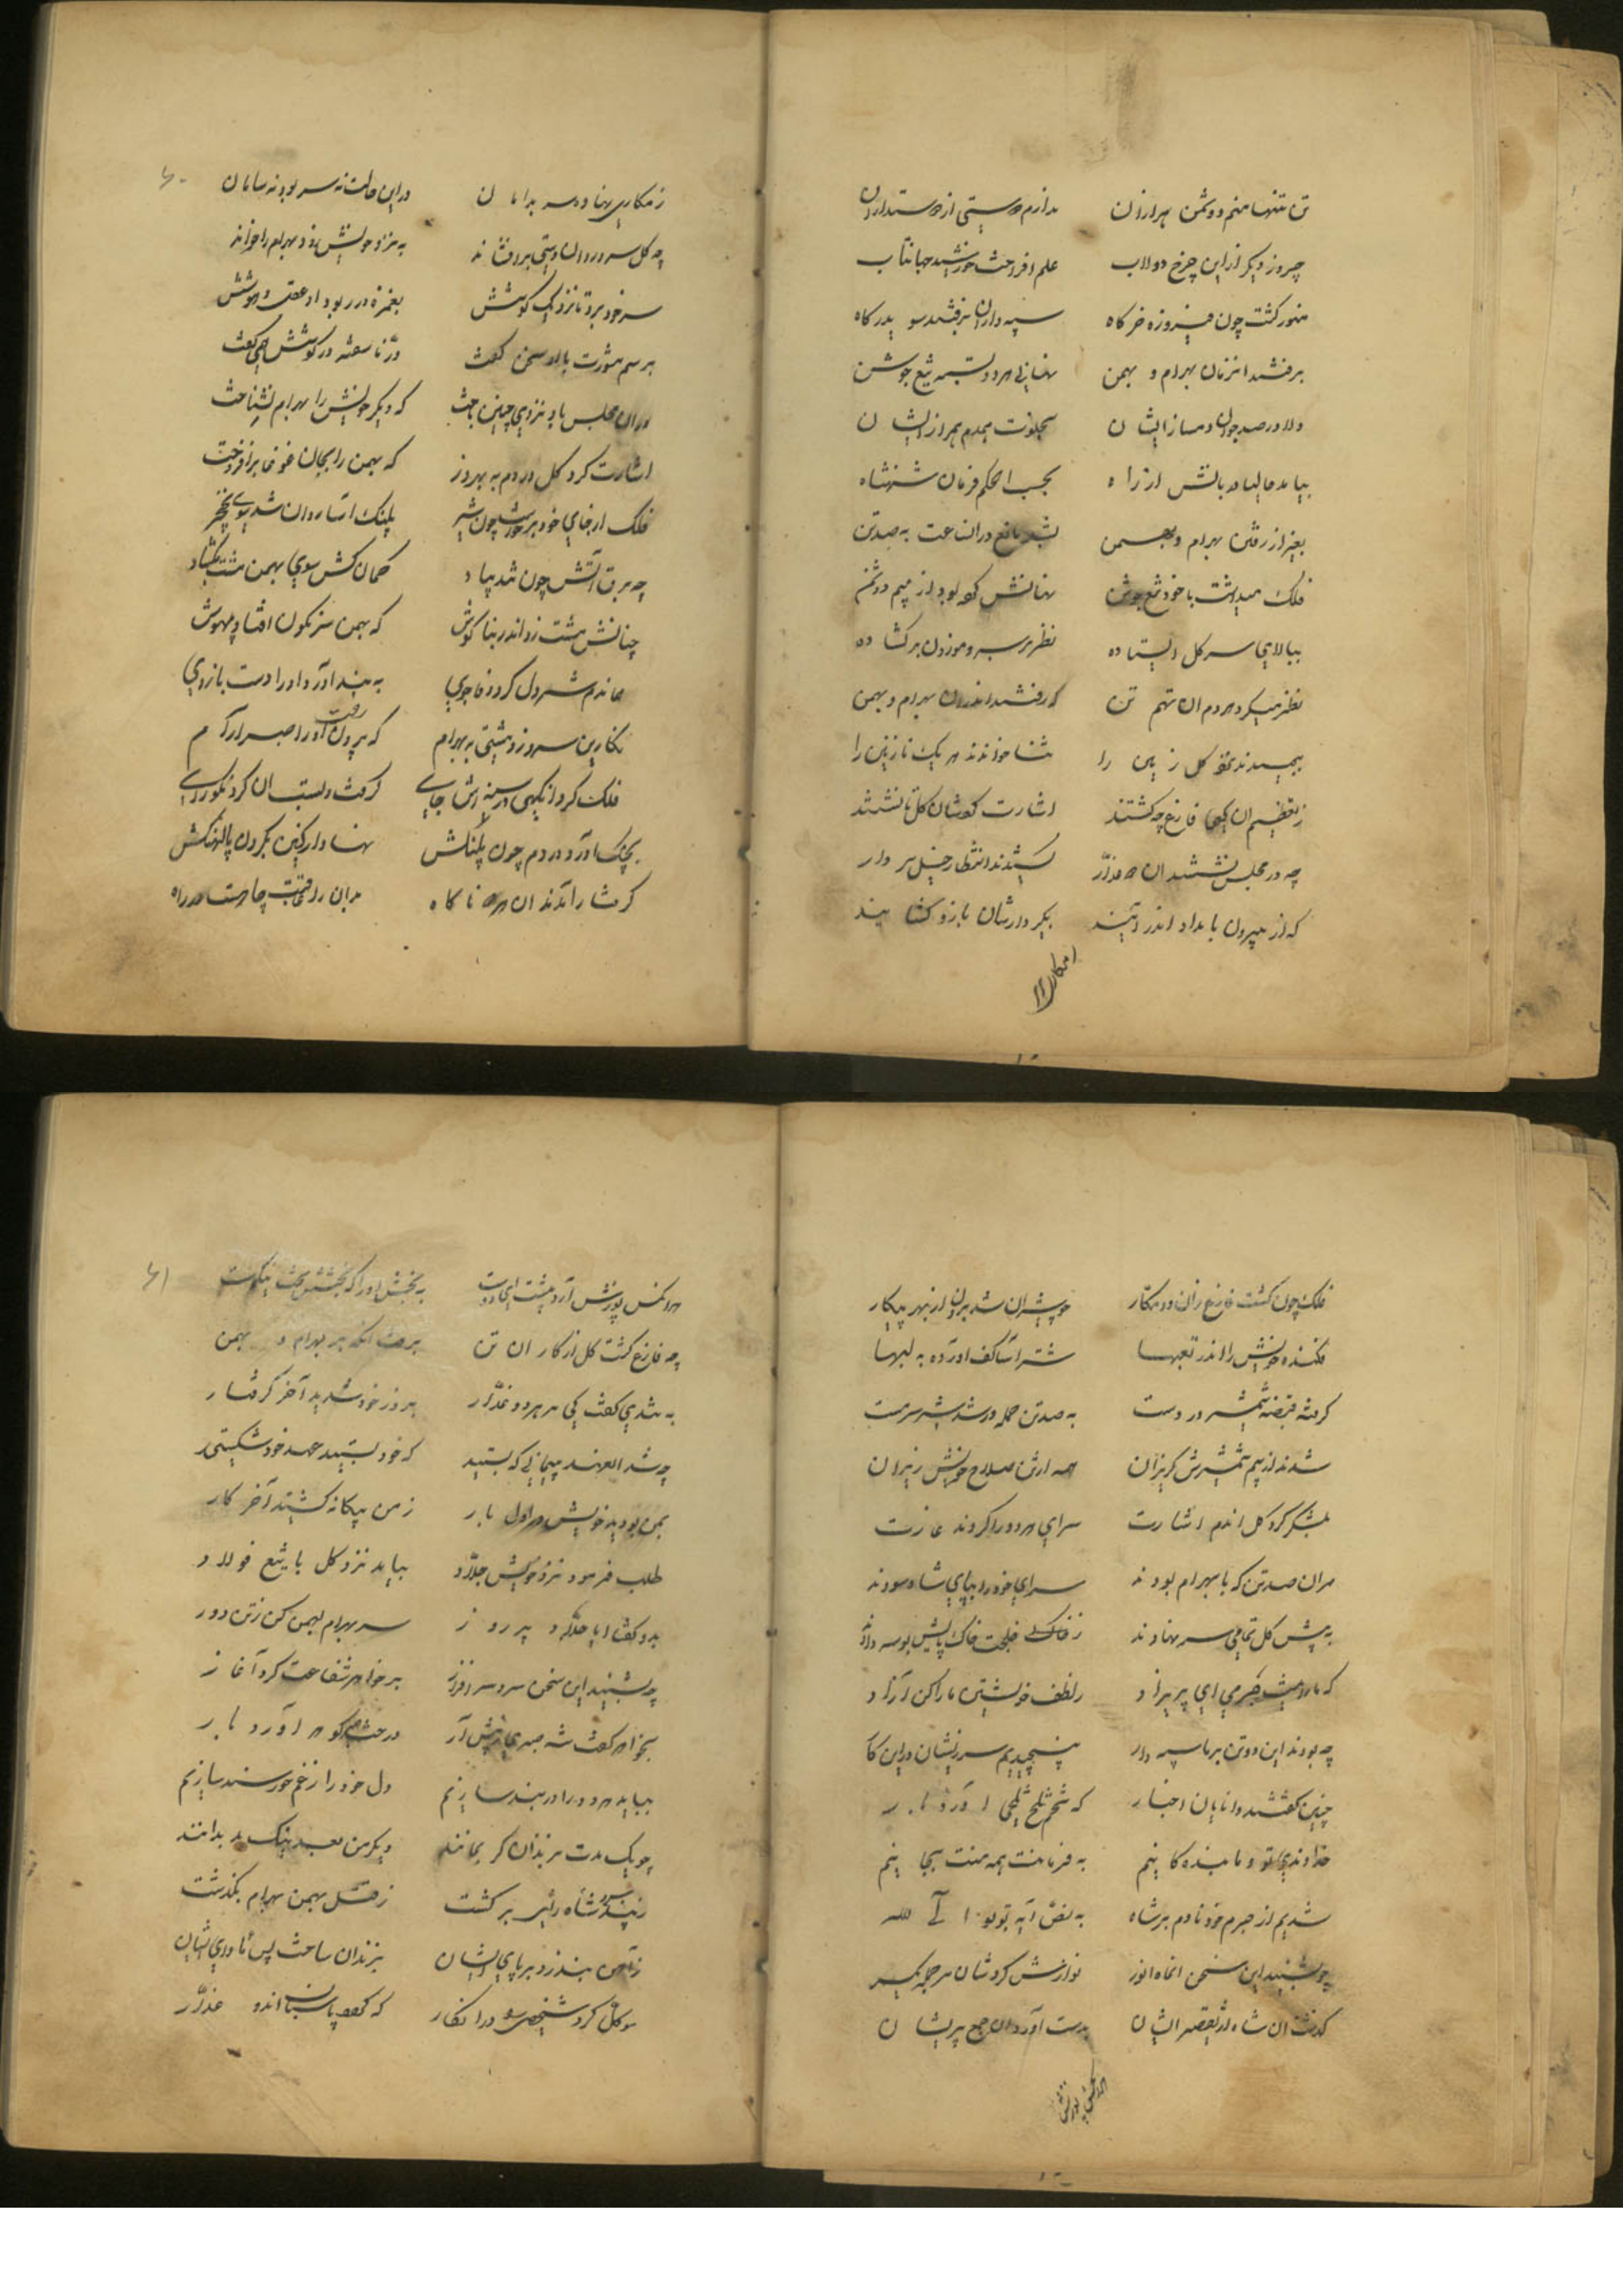 تن تنها منم دشمن هزاران ندارم دوستی از دوستداران
چو روز دیکر از این چرخ دولاب علم افروخت خورشید جهانتاب
منور کشت چون فیروزه خرکاه سپه داران برفتند سو بدرکاه
برفتند انزمان بهرام و بهمن نهانی هردو بسته تیغ جوشن
دلاور صد جوان دمساز ایشان بخلوت همدم همراز ایشان
بیامد بالش از راه بحسب الحکم فرمان شهنشاه
بغیر از رفتن بهرام و بهمن بشد مانع در انساعت به صدتن
فلک میداشت با خود تیغ جوشن نهانش کو بود از بیم دشمن
ببالای سر کل ایستاده نظر بر سرو موزون برکشاده
نظر میکرد هردم ان تهمتن که رفتند اندران بهرام و بهمن
ببوسیدند کل زمین را ثنا خواندند هریک نازنین را
ز تعظیم ان فارغ چو کشتند اشارت کردشان کل تا نشستند
چه در مجلس نشستند ان دو غدار کشیدند انتظار خیل سردار
که از بیرون بامداد اندر آیند بکردارشان بازو کشایند
ز مکاری
۶۰
ز مکاری نهاده سر بدامان در این حالت نه سر بود و نه سامان
چه کل سرو روان دستی برافشاند به نزد خویش زود بهرام را خواند
سر خود برد تا نزدیک کوشش بغمزه در ربود او عقل و هوشش
برسم مشورت با او سخن کفت در ناسفته در کوشش همی کفت
دران مجلس باو نردی چنین باخت که دیکر خویش را بهرام نشناخت
اشارت کرد کل در دم به بهروز که بهمن را بجان غوغا برافروخت
فلک از جای خود برخواست چون شیر پلنک آسا روان شد سوی نخچیر
چه برق آتش چون شد پیاد کمان کش سوی بهمن مشت بکشاد
چنانش مشت زد اندر بناکوش که بهمن سرنکون افتاد و بیهوش
به بند آورد او را دست بازوی
نکارین سرو زد دستی به بهرام که بیرون رفت او را صبر آرام
فلک کرد از جای کرفت و بست
بچنک آورد در دم چون پلنکش نهاد بکردن پالهنکش
کرفتار آمدند ان هردو ناکاه بدان را عاقبت چاه است در راه
فلک چون کشت فارغ زان دو مکار چو شیران شد برون از بهر پیکار
فکنده خویش را اندر شتر آسا کف آورده به لبها
کرفته قبضه شمشیر در دست به صدتن حمله ور شد شیر سرمست
شدند از بیم شمشیرش کریزان همه ارش سلاح خویش ریزان
بلشکر کرد کل اندم اشارت سرای هردو را کردند غارت
هران صدتن که با بهرام بودند سرای خود را بپای شاه سودند
به پیش کل تمامی سر نهادند ز خاک خجلت خاک پایش بوسه دادند
که ما را نیست جرمی ای پریزاد ز لطف خویشتن ما را کن آزاد
چه بودند این دوتن بر ما سپه دار نپیچیدیم سر زیشان در این کار
چنین کفتند دانایان اخبار که تخم تلخ تلخی آورد بار
خداوندی تو و ما بنده کانیم به فرمانت همه منت بجانیم
شدیم از جرم خود نادم بر شاه به نص آیه توبوا الی الله
چو بشنید این سخن انماه انور نوازش کردشان هر جمله یکسر
کذشت ان شاه از تقصیر ایشان بدست آورد ان جمع پریشان
هرانکس پوزش
۶۱
هرانکس پوزش آرد پیشت ای دوست به بخشش او را که بخشش سخت نیکوست
چه فارغ کشت کل از کار ان تن برفت انکه بر بهرام و بهمن
به تندی کفت کی هر دو غدار بروز خود شدید آخر کرفتار
چه شد العهد پیمانی که بستید که خود بستید عهد خود شکستید
بمن بودید خویش اول بار ز من بیکانه کشتید آخر کار
طلب فرمود نزد خویش جلاد بیامد نزد کل با تیغ فولاد
بدو کفتا ایا جلاد پیروز سر بهرام بهمن کن ز تن دور
چه بشنید این سخن سرو سرافراز برخواهر شفاعت کرد آغاز
بخواهر کفت شه صبری به پیش آر درخت آورد بار
بیاید هردو را در بند سازیم دل خود را ز غم خورسند سازیم
چو یک مدت بزندان کر بمانند دیکر من بعد نیک بد بدانند
ز پند سرو شاه از رای برکشت ز قتل بهمن بهرام بکذشت
ز آهن بند زد بر پای ایشان بزندان ساخت پس ماوای ایشان
موکل کرد شخصی را در انکار که پاسبان ان دو غدار